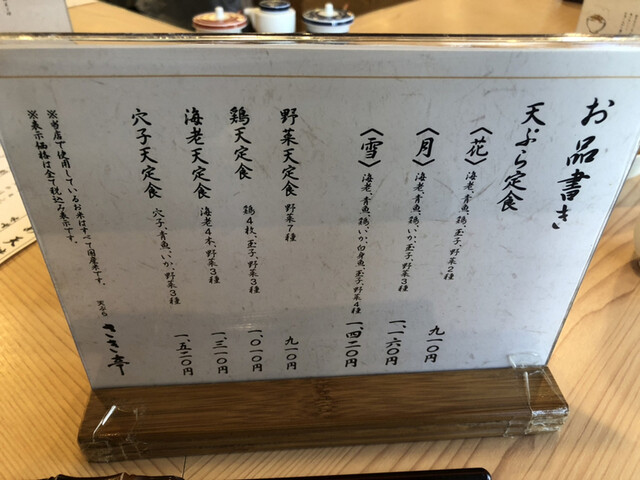 お品書き
天ぷら定食
〈花〉 海老、青魚、鶏、玉子、野菜2種 九一〇円
〈月〉 海老、青魚、鶏、いか、玉子、野菜3種 一、一六〇円
〈雪〉 海老、青魚、鶏、いか、白身魚、玉子、野菜4種 一、四二〇円
野菜天定食 野菜7種 九一〇円
鶏天定食 鶏4枚、玉子、野菜3種 一、〇一〇円
海老天定食 海老4本、野菜3種 一、三一〇円
穴子天定食 穴子、青魚、いか、野菜3種 一、五二〇円
※当店で使用しているお米はすべて国産米です。
※表示価格は全て税込み表示です。
天ぷら さき幸